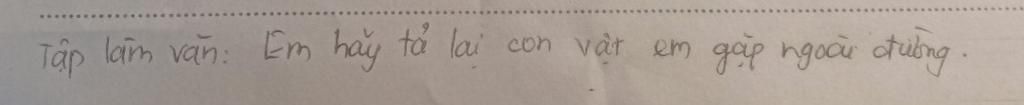 Tập làm văn: Em hãy tả lại con vật em gặp ngoài đường.